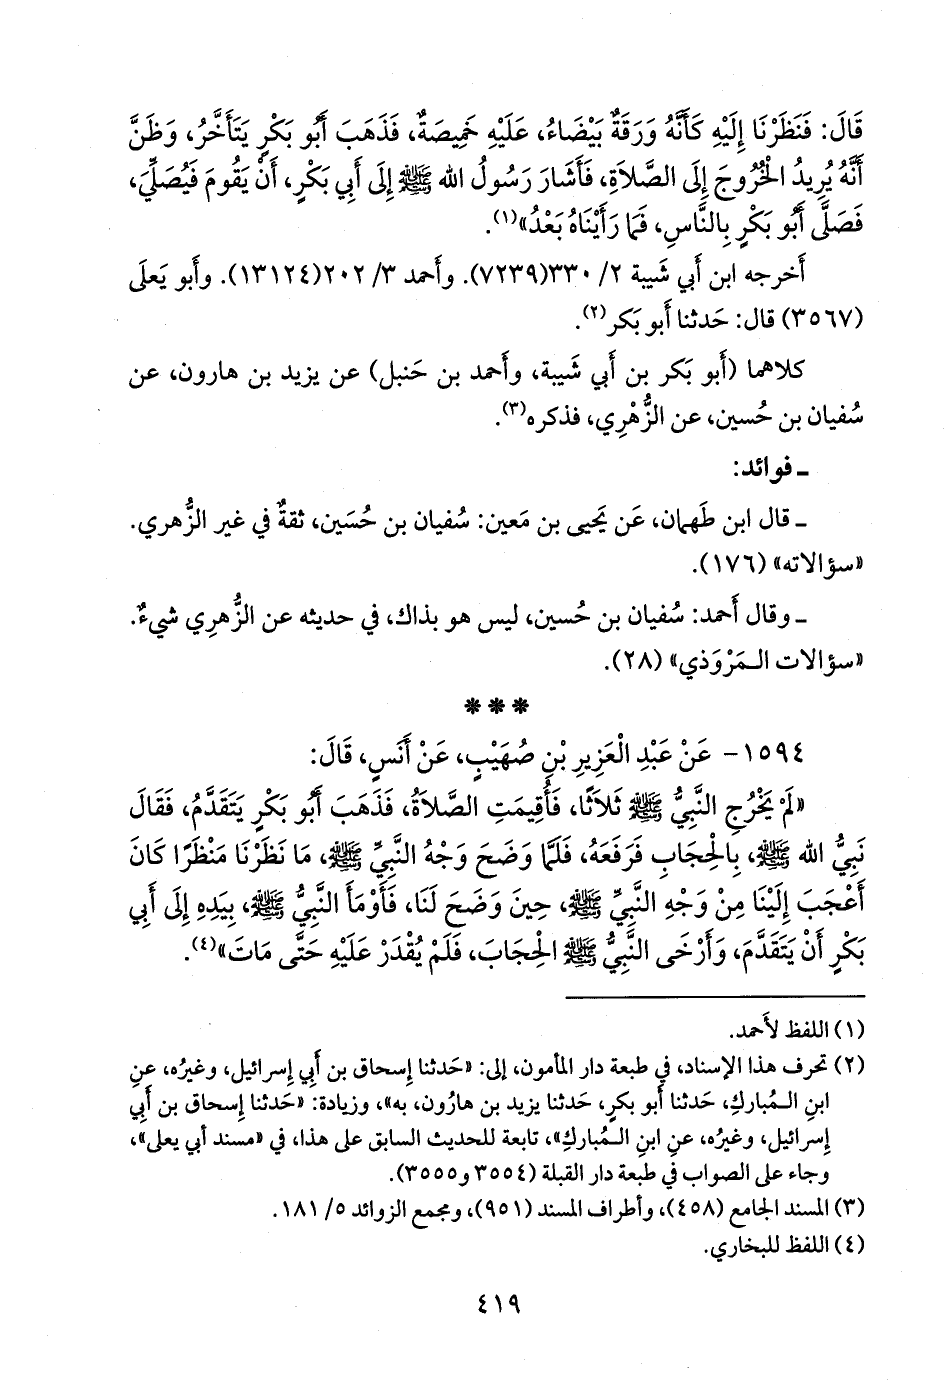 قَالَ: فَنَظَرْنَا إِلَيْهِ كَأَنَّهُ وَرَقَةٌ بَيْضَاءُ، عَلَيْهِ خَمِيصَةٌ، فَذَهَبَ أَبُو بَكْرٍ يَتَأَخَّرُ، وَظَنَّ
أَنَّهُ يُرِيدُ الْخُرُوجَ إِلَى الصَّلَاةِ، فَأَشَارَ رَسُولُ الله ﷺ إِلَى أَبِي بَكْرٍ، أَنْ يَقُومَ فَيُصَلِّيَ،
فَصَلَّى أَبُو بَكْرٍ بِالنَّاسِ، فَمَا رَأَيْنَاهُ بَعْدُ»(١).
أَخرجه ابن أَبي شَيبة ٢/ ٣٣٠(٧٢٣٩). وأَحمد ٣/ ٢٠٢(١٣١٢٤). وأَبو يَعلَى
(٣٥٦٧) قال: حَدثنا أَبو بَكر(٢).
كلاهما (أَبو بَكر بن أَبي شَيبة، وأَحمد بن حَنبل) عن يزيد بن هارون، عن
سُفيان بن حُسين، عن الزُّهْري، فذكره(٣).
ـ فوائد:
ـ قال ابن طَهمان، عَن يَحيى بن مَعين: سُفيان بن حُسَين، ثقةٌ في غير الزُّهري.
«سؤالاته» (١٧٦).
ـ وقال أَحمد: سُفيان بن حُسين، ليس هو بذاك، في حديثه عن الزُّهرِي شيءٌ.
«سؤالات الـمَرْوَذي» (٢٨).
***
١٥٩٤- عَنْ عَبْدِ الْعَزِيزِ بْنِ صُهَيْبٍ، عَنْ أَنَسٍ، قَالَ:
«لَمْ يَخْرُجِ النَّبِيُّ ﷺ ثَلَاثًا، فَأُقِيمَتِ الصَّلَاةُ، فَذَهَبَ أَبُو بَكْرٍ يَتَقَدَّمُ، فَقَالَ
نَبِيُّ الله ﷺ، بِالْحِجَابِ فَرَفَعَهُ، فَلَمَّا وَضَحَ وَجْهُ النَّبِيِّ ﷺ، مَا نَظَرْنَا مَنْظَرًا كَانَ
أَعْجَبَ إِلَيْنَا مِنْ وَجْهِ النَّبِيِّ ﷺ، حِينَ وَضَحَ لَنَا، فَأَوْمَأَ النَّبِيُّ ﷺ، بِيَدِهِ إِلَى أَبِي
بَكْرٍ أَنْ يَتَقَدَّمَ، وَأَرْخَى النَّبِيُّ ﷺ الْحِجَابَ، فَلَمْ يُقْدَرْ عَلَيْهِ حَتَّى مَاتَ»(٤).
(١) اللفظ لأَحمد.
(٢) تحرف هذا الإسناد، في طبعة دار المأمون، إلى: «حَدثنا إِسحاق بن أَبي إِسرائيل، وغيرُه، عنِ
ابنِ الـمُباركِ، حَدثنا أَبو بكرٍ، حَدثنا يزيد بن هارُون، به»، وزيادة: «حَدثنا إِسحاق بن أَبي
إِسرائيل، وغيرُه، عنِ ابنِ الـمُباركِ»، تابعة للحديث السابق على هذا، في «مسند أبي يعلى»،
وجاء على الصواب في طبعة دار القبلة (٣٥٥٤ و٣٥٥٥).
(٣) المسند الجامع (٤٥٨)، وأطراف المسند (٩٥١)، ومجمع الزوائد ٥/ ١٨١.
(٤) اللفظ للبخاري.
٤١٩